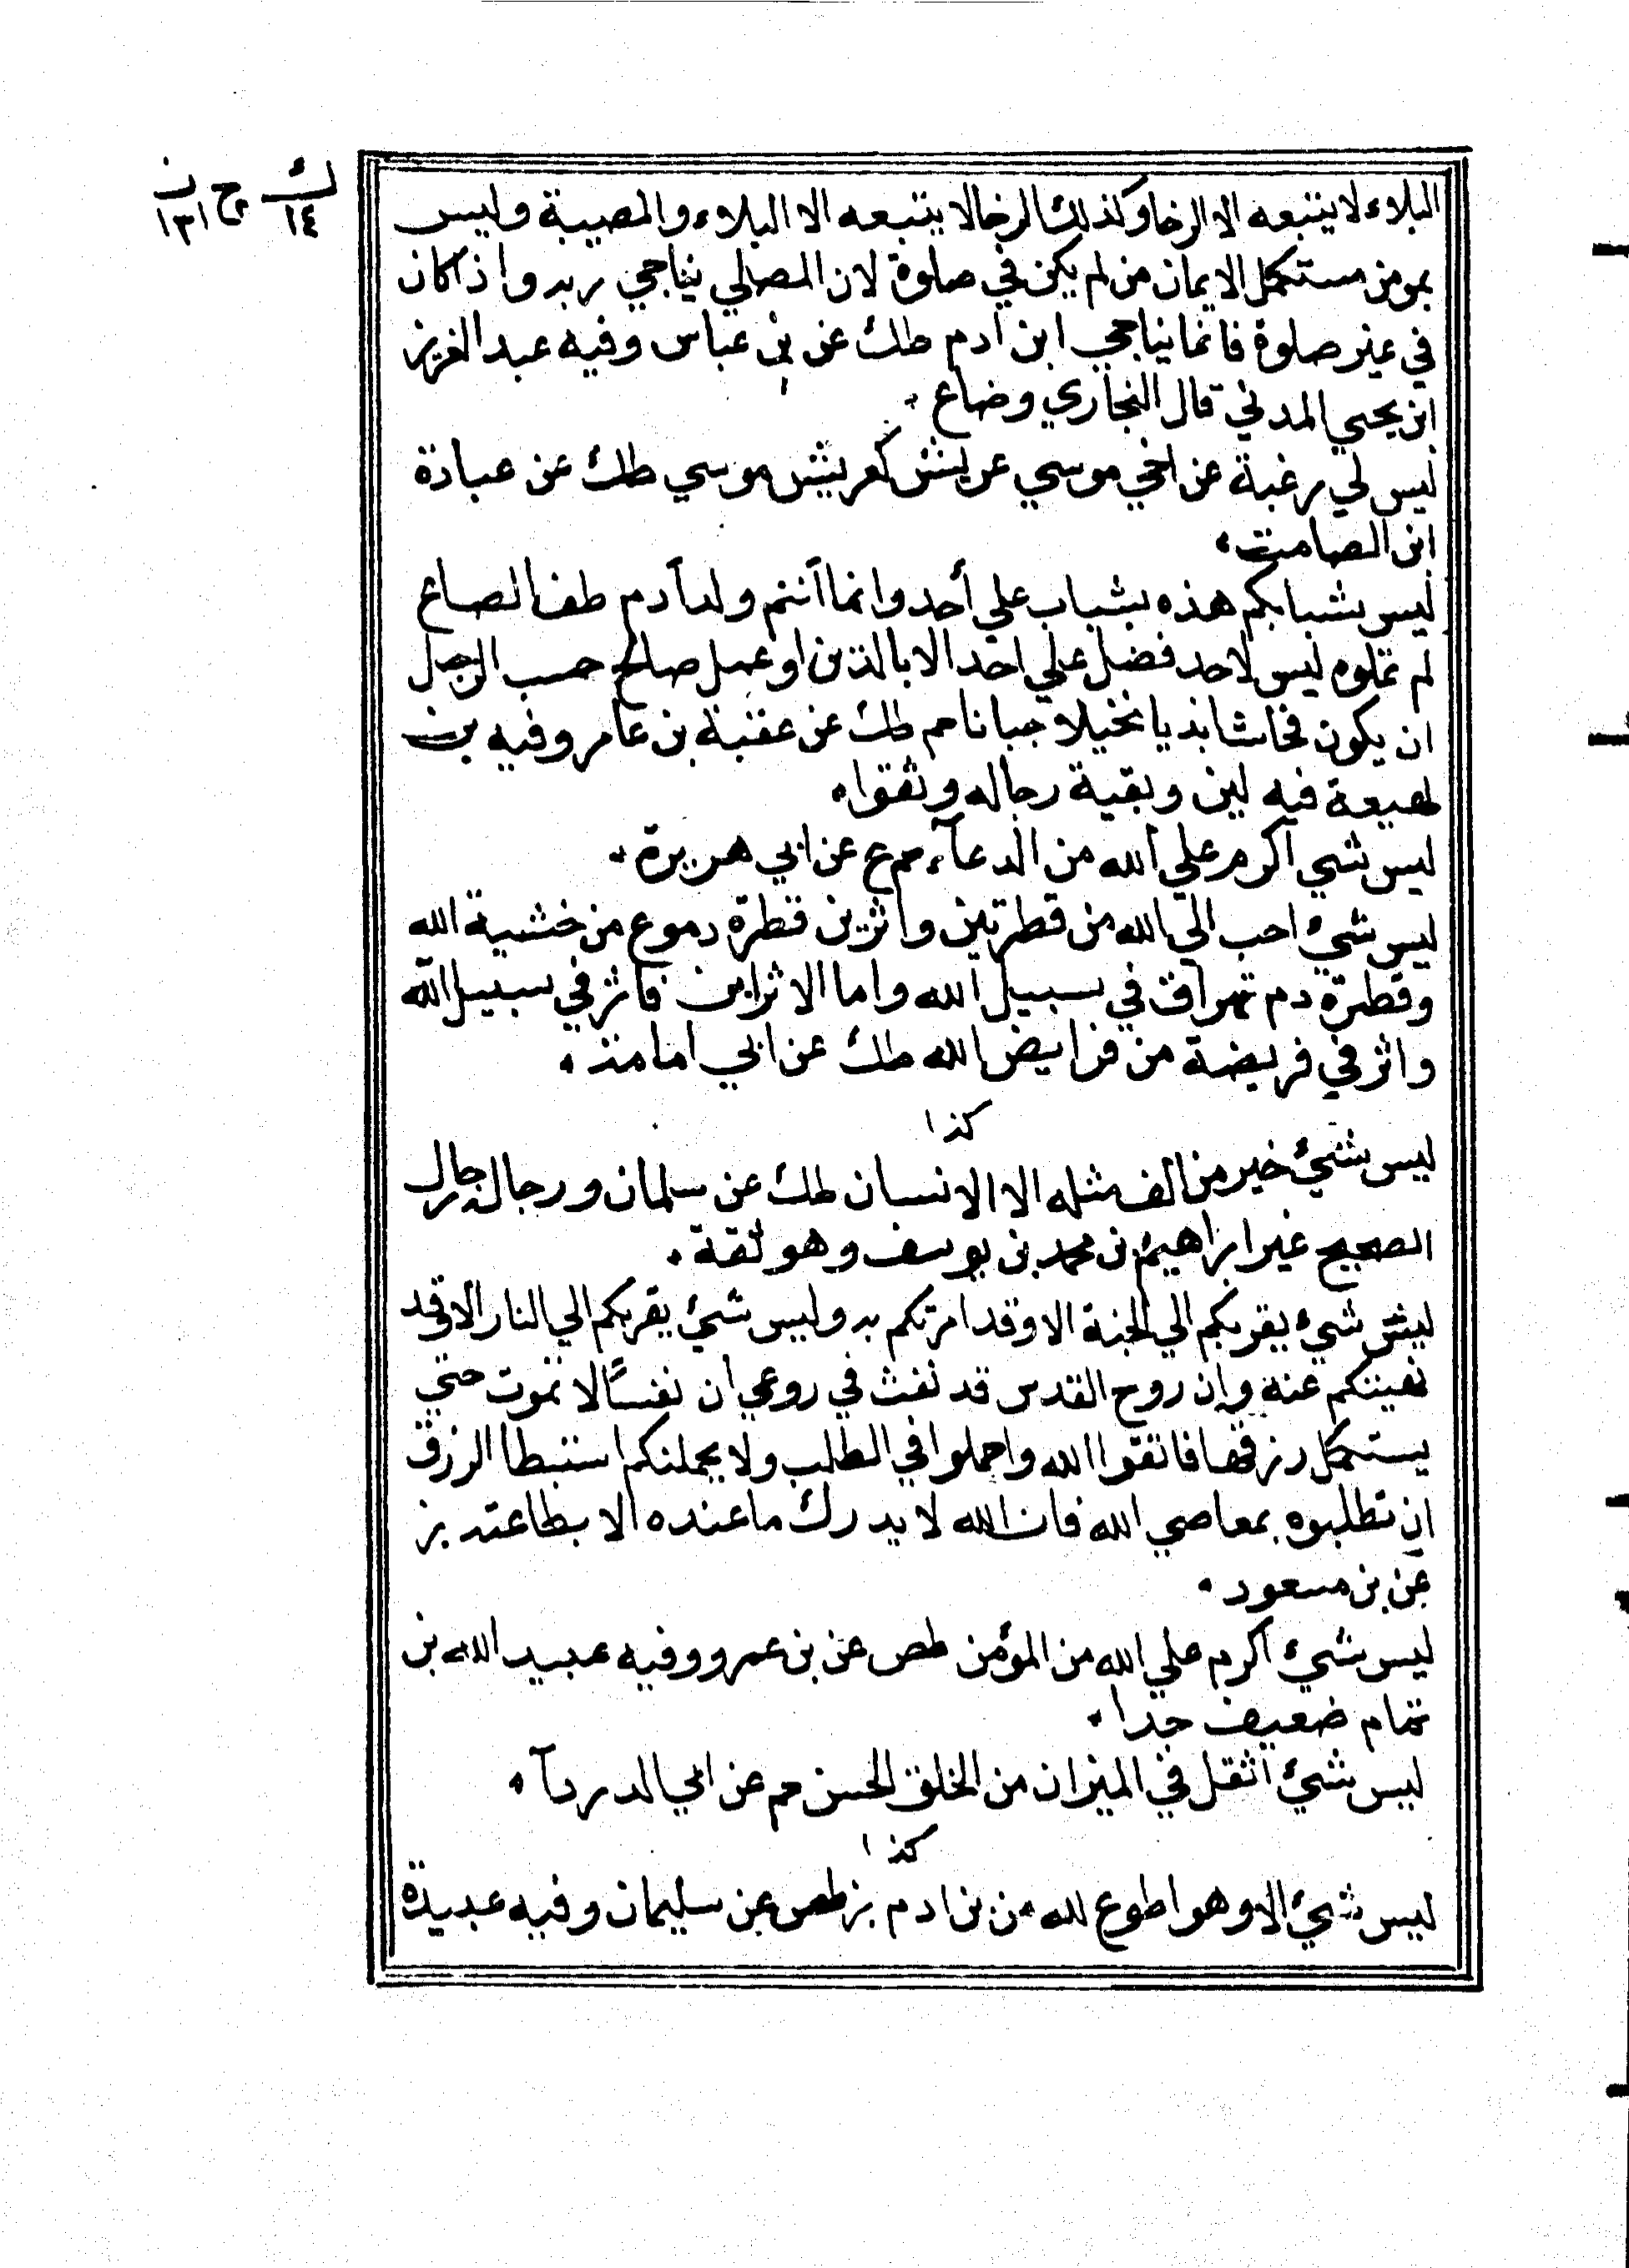 ك ج ن
١٤ ١٣١
البلاء لا يتبعه الا الرخا وكذلك الرخا لا يتبعه الا البلاء والمصيبة وليس
بمومن مستكمل الايمان من لم يكن في صلوة لان المصلي يناجي ربه واذا كان
في غير صلوة فانما يناجي ابن ادم طك عن بن عباس وفيه عبد العزيز
ابن يحيي المدني قال البخاري وضاع
ليس لي رغبة عن اخي موسي عريش كعريش موسي طك عن عبادة
ابن الصامت
ليس بشبابكم هذه بشباب علي أحد وانما أنتم ولد آدم طف الصاع
لم تملوه ليس لاحد فضل علي احد الا بالدين او عمل صالح حسب الرجل
ان يكون فحاشا بذيا بخيلا جبانا حم طك عن عقبة بن عامر وفيه بن
لهيعة فيه لين وبقية رجاله وثقوا
ليس شي اكرم علي الله من الدعآء حم ع عن ابي هريرة
ليس شيء احب الي الله من قطرتين واثرين قطرة دموع من خشية الله
وقطرة دم تهراق في سبيل الله واما الاثراين فاثر في سبيل الله
واثر في فريضة من فرايض الله طك عن ابي امامة
كذا
ليس شيئ خير من الف مثله الا الانسان طك عن سلمان ورجاله رجال
الصحيح غير ابراهيم بن محمد بن يوسف وهو ثقة
ليس شيء يقربكم الي الجنة الا وقد امرتكم به وليس شيئ يقربكم الي النار الا وقد
نهيتكم عنه وان روح القدس قد نفث في روعي ان نفسًا لا تموت حتي
يستكمل رزقها فاتقوا الله واجملوا في الطلب ولا يحملنكم استبطا الرزق
ان تطلبوه بمعاصي الله فان الله لا يدرك ما عنده الا بطاعته بز
عن بن مسعود
ليس شيئ اكرم علي الله من المؤمن طص عن بن عمرو وفيه عبيد الله بن
تمام ضعيف جدا
ليس شيئ اثقل في الميزان من الخلق الحسن حم عن ابي الدردآ
كذا
ليس شيئ الا وهو اطوع لله من بن ادم بز طص عن سليمان وفيه عبيدة